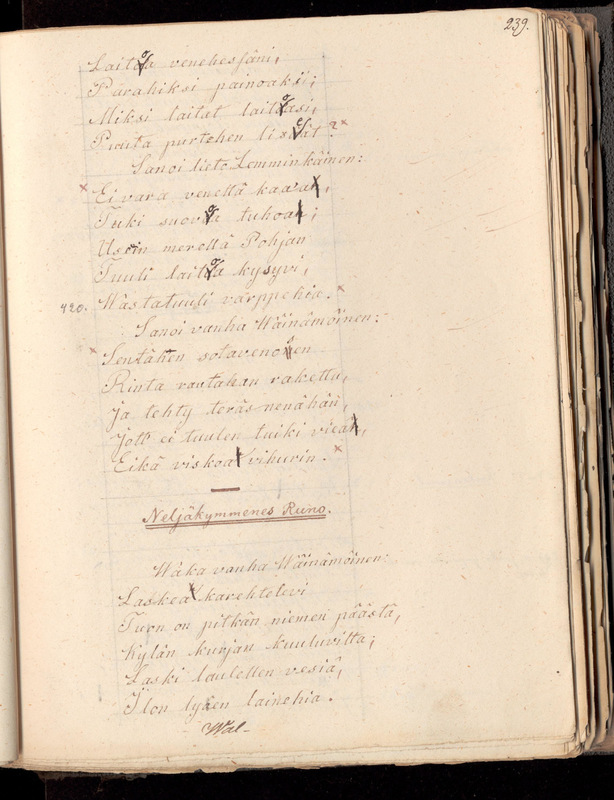 239.
Laitoa venehessäni,
Parahiksi painoaki;
Miksi laitat laitoasi,
Puuta purtehen liseät?
Sanoi lieto Lemminkäinen:
Ei vara venettä kaaa,
Tuki suovoa tuhoa;
Usein merellä Pohjan
Tuuli laitoa kysyvi,
420. Wastatuuli värppehiä.
Sanoi vanha Wäinämöinen:
Sentähen sotavenoisen
Rinta rautahan rakettu,
Ja tehty teräsnenähän,
Jott' ei tuulen tuiki vieä,
Eikä viskoa vihurin.
Neljäkymmenes Runo.
Waka vanha Wäinämöinen:
Laskea karehtelevi
Tuon on pitkän niemen päästä,
Kylän kurjan kuuluvilta;
Laski lauletten vesiä,
Ilon lyöen lainehia.
Wal-